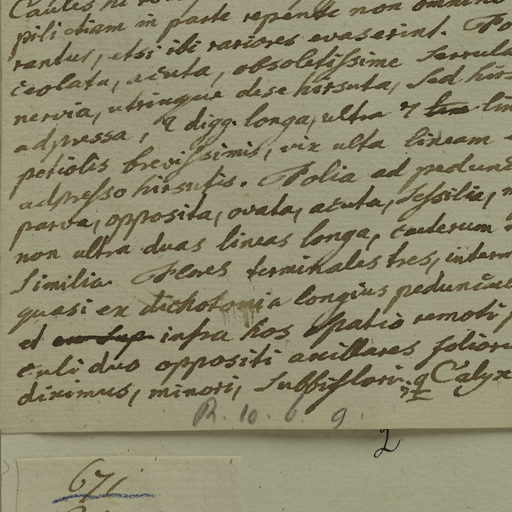 Caules hi
pili etiam in parte repente non omnino
rantur, etsi ibi rariores evaserint. Fo
ceolata, acuta, obsoletissime serrula
nervia, utrinque dese hirsuta, sed hirs
adpressa, 2 digg. longa, ultra 7 lin
petiolis brevissimis, vix ulta lineam
adpresso hirsutis. Folia ad pedunc
parva, opposita, ovata, acuta, sessilia,
non ultra duas lineas longa, caeterum
similia. Flores terminales tres, interm
quasi ex dichotomia longius peduncul
et infra hos spatio remoti
culi duo oppositi axillares folioru
dirimus, minori, subbiflori. Calyx
R. 10. 6. 9.
2
671